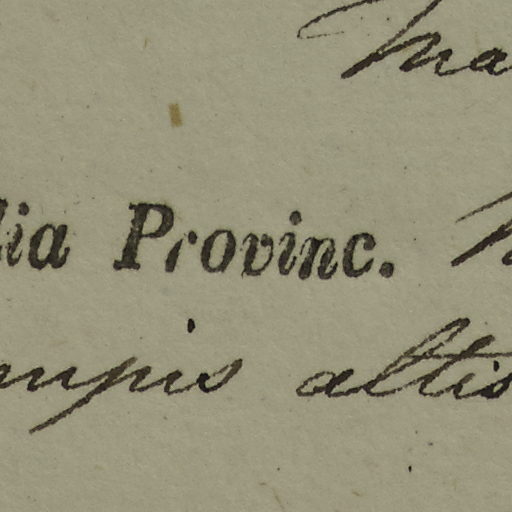 Ma
lia Provinc.
rupis altis